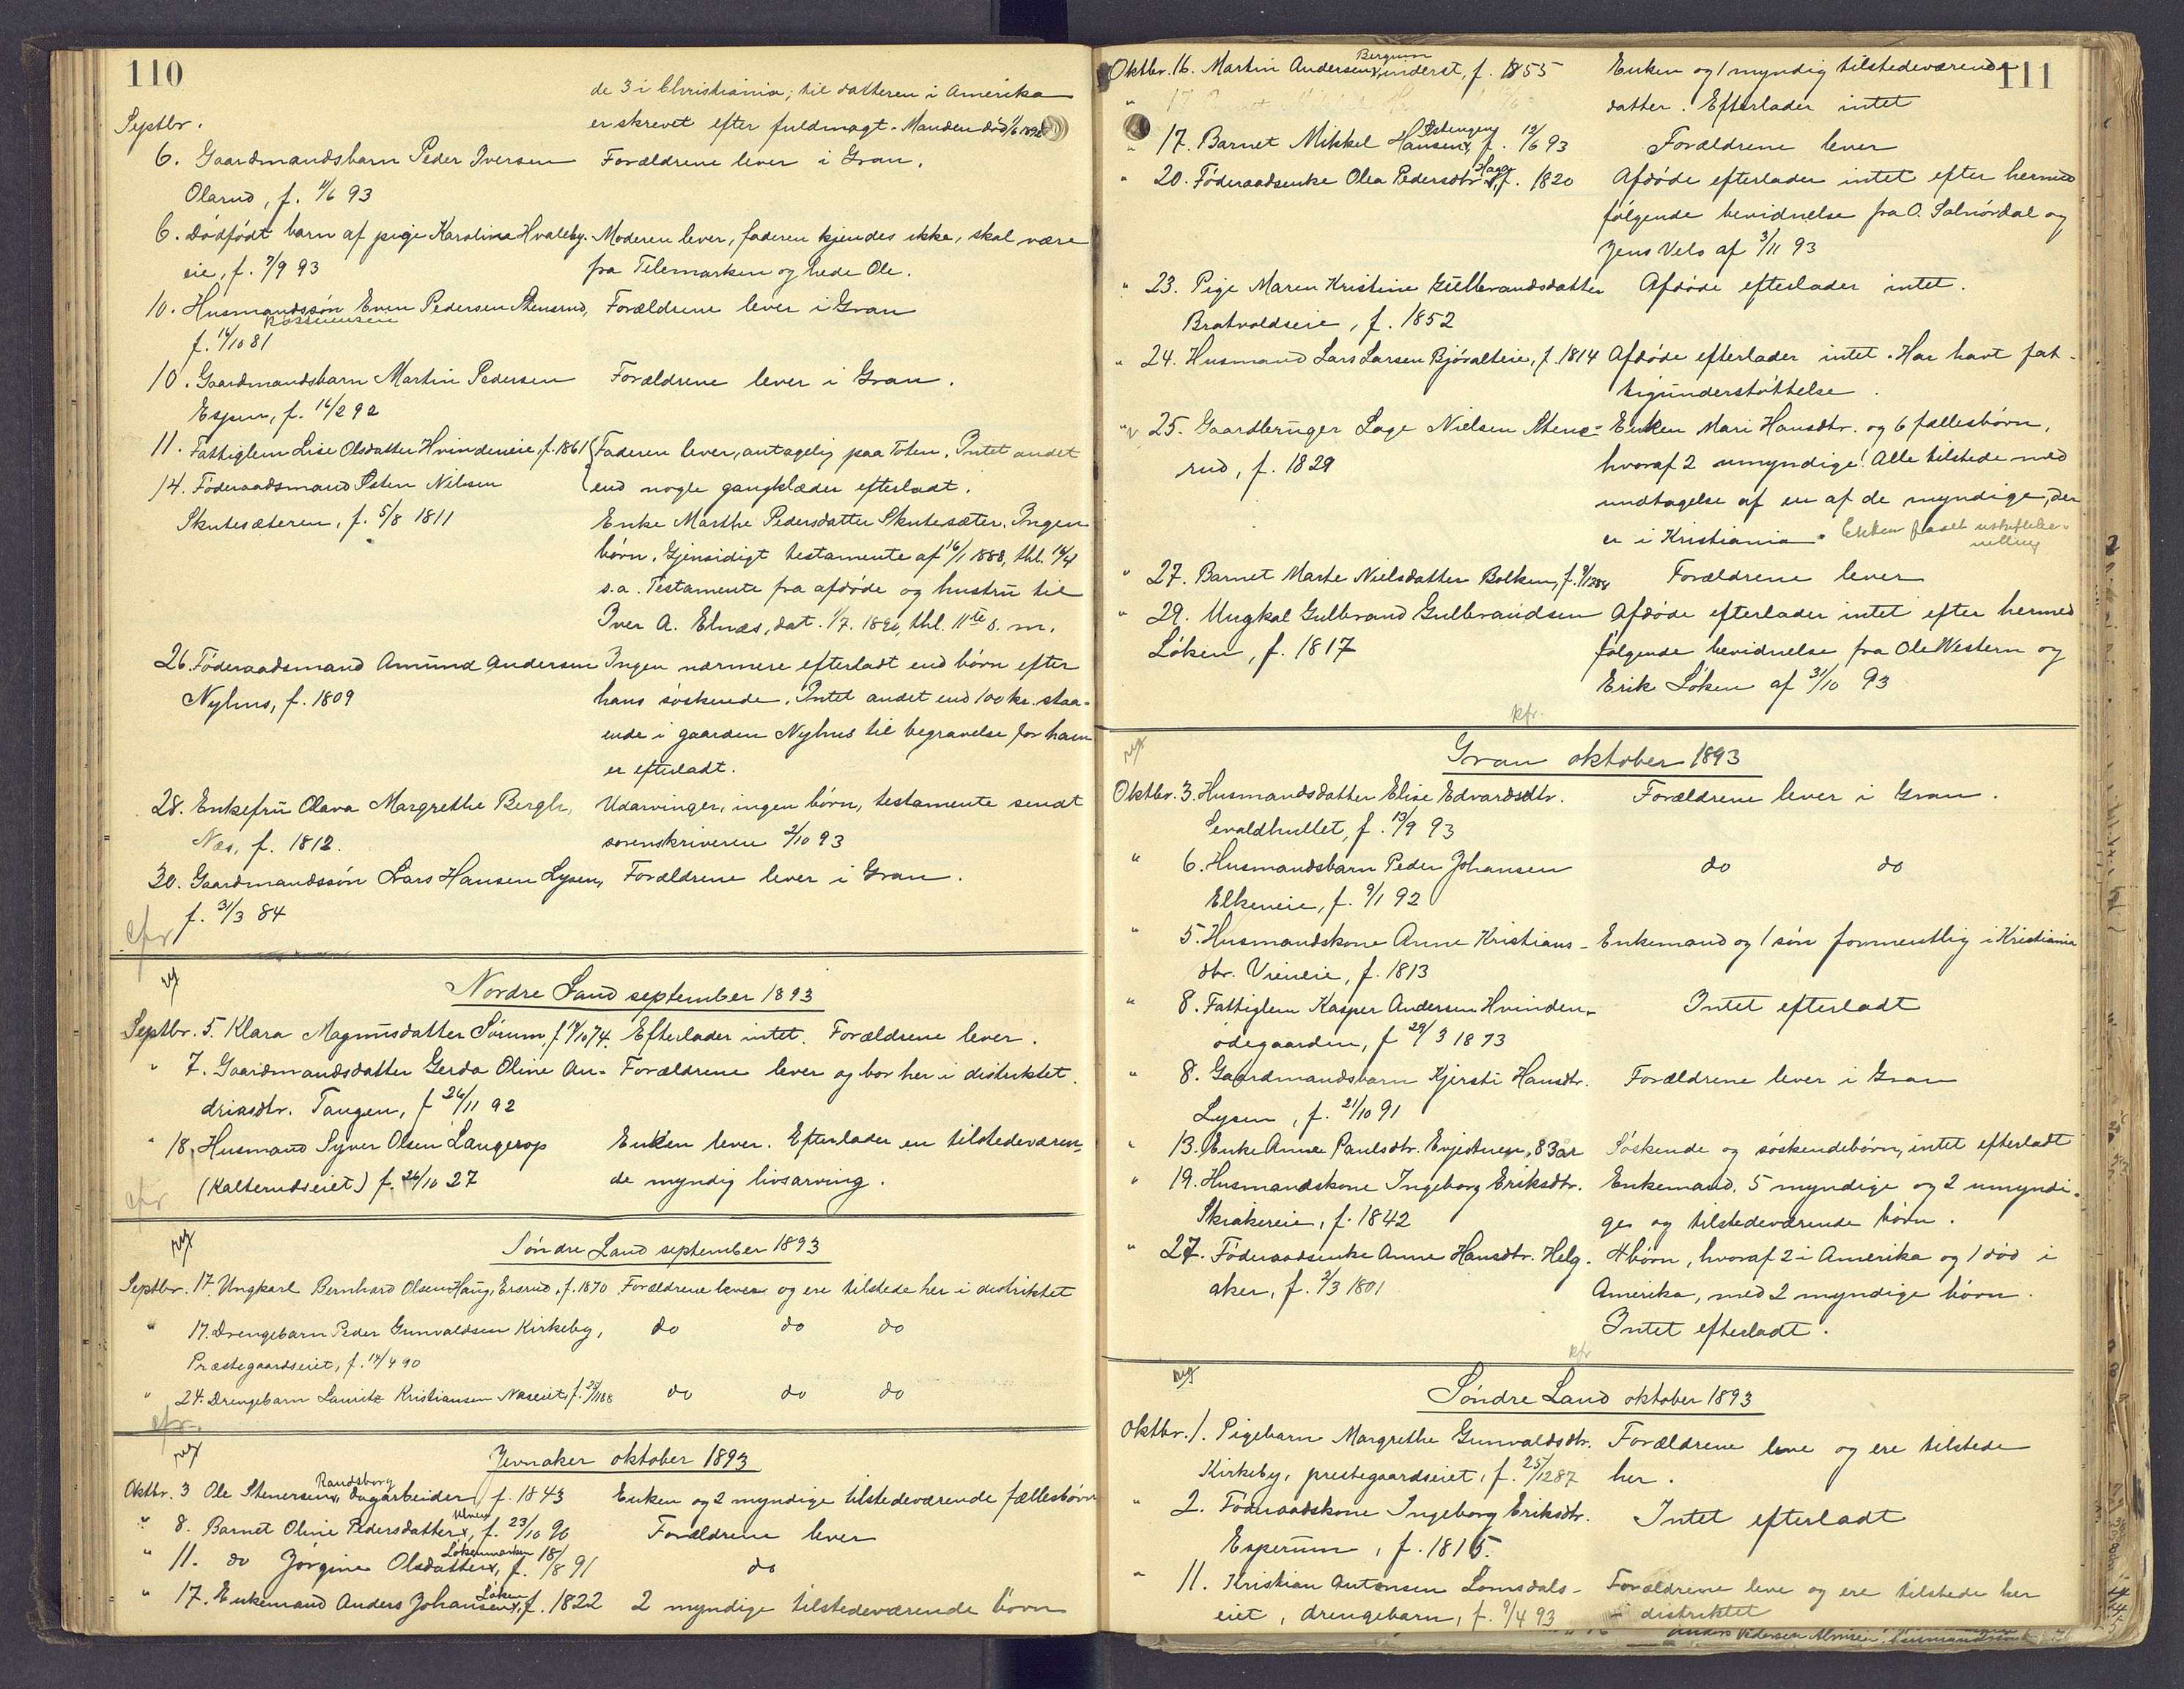 110
de 3 i Christiania; til datteren i Amerika
Septbr. er skrevet efter fuldmagt. Manden død 1/6 1892
6. Gaardmandsbarn Peder Iversen Forældrene lever i Gran.
Olarud, f. 11/6 93
6. Dødfødt barn af pige Karoline Hvaleby- Moderen lever, faderen kjendes ikke, skal være
eie, f. 7/9 93 fra Telemarken og hede Ole.
10. Husmandssøn Even Pedersen Stensrud, Forældrene lever i Gran
f. 16/10 81
10. Gaardmandsbarn Martin Pedersen Forældrene lever i Gran.
Espen, f. 16/2 92
11. Fattiglem Lise Olsdatter Hvindeneie, f. 1861 Faderen lever, antagelig paa Toten. Intet andet
14. Føderaadsmand Sten Nilsen end nogle gangklæder efterladt.
Skutesæteren, f. 5/8 1811 Enke Marthe Pedersdatter Skutesæter. Ingen
børn. Gjensidigt testamente af 16/1 1888, thl. 16/4
s.a. Testamente fra afdøde og hustru til
Iver A. Elnæs, dat. 1/7. 1890, thl. 11te s. m.
26. Føderaadsmand Amund Andersen Ingen nærmere efterladt end børn efter
Nyhus, f. 1809 hans søskende. Intet andet end 100 kr. staa-
ende i gaarden Nyhus til begravelse for ham
er efterladt.
28. Enkefru Olava Margrethe Bergh, Udarvinger, ingen børn, testamente sendt
Næs, f. 1812. sorenskriveren 2/10 93
30. Gaardmandssøn Lars Hansen Lysen, Forældrene lever i Gran.
f. 31/3 84
cfr
Nordre Land september 1893
Septbr. 5. Klara Magnusdatter Sørum, f. 9/10 74. Efterlader intet. Forældrene lever.
" 7. Gaardmandsdatter Gerda Oline An- Forældrene lever og bor her i distriktet.
driasdtr. Tangen, f 26/11 92
" 18. Husmand Syver Olsen Langerop Enken lever. Efterlader en tilstedeværen-
(Kalterudseiet) f. 26/10 27 de myndig livsarving.
cfr
Søndre Land september 1893
Septbr. 17. Ungkarl Bernhard Olsen Haug, Ersrud, f. 1870 Forældrene lever og ere tilstede her i distriktet
" 17. Drengebarn Peder Gunvaldsen Kirkeby, do do do
Præstegaardseiet, f. 14/4 90
" 24. Drengebarn Lauritz Kristiansen Næseiet, f. 25/11 88 do do do
cfr.
Jevnaker oktober 1893
Randsborg
Oktbr. 3 Ole Stenersen, dagarbeider, f. 1843 Enken og 2 myndige tilstedeværende fællesbørn
" 8. Barnet Oline Pedersdatter, f. 23/10 90 Forældrene lever
Løkenmarken
" 11. do Jørgine Olsdatter, f. 18/8 91 do
Løken
" 17. Enkemand Anders Johansen, f. 1822 2 myndige tilstedeværende børn
111
Bergum
Oktbr. 16. Martin Andersen, inderst, f. 1855 Enken og 1 myndig tilstedeværende
datter. Efterlader intet
" 17. Barnet Mikkel Hansen, f. 12/6 93 Forældrene lever
Haga
" 20. Føderaadsenke Olea Pedersdtr., f. 1820 Afdøde efterlader intet efter hermed
følgende bevidnelse fra O. Solnørdal og
Jens Velo af 3/11 93
" 23. Pige Maren Kristine Gulbrandsdatter Afdøde efterlader intet.
Bratvoldseie, f. 1852
" 24. Husmand Lars Larsen Bjøralteie, f. 1814 Afdøde efterlader intet. Har havt fat-
tigunderstøttelse.
" 25. Gaardbruger Lage Nielsen Stens- Enken Mari Hansdtr. og 6 fællesbørn,
rud, f. 1829 hvoraf 2 umyndige. Alle tilstede med
undtagelse af en af de myndige, der
er i Kristiania.
" 27. Barnet Marte Nielsdatter Bolken, f. 9/12 88 Forældrene lever
" 29. Ungkal Gulbrand Gulbrandsen Afdøde efterlader intet efter hermed
Løken, f. 1817 følgende bevidnelse fra Ole Western og
Erik Løken af 31/10 93
kfr.
Gran oktober 1893
Oktbr. 3. Husmandsdatter Elise Edvardsdtr. Forældrene lever i Gran.
Sevaldhullet, f. 13/9 93
" 6. Husmandsbarn Peder Johansen do do
Elkeneie, f. 9/1 92
" 5. Husmandskone Anne Kristians- Enkemand og 1 søn formentlig i Kristiania
dtr. Vieneie, f. 1813
" 8. Fattiglem Kasper Andersen Hvinden- Intet efterladt
ødegaarden, f 29/3 1873
" 8. Gaardmandsbarn Kjersti Hansdtr. Forældrene lever i Gran
Lysen, f. 21/10 91
" 13. Enke Anne Paulsdtr. Egjestuen, 83 år Søskende og søskendebørn, intet efterladt
" 19. Husmandskone Ingeborg Eriksdtr. Enkemand, 5 myndige og 2 umyndi-
Skrakereie, f. 1842 ge og tilstedeværende børn.
" 27. Føderaadsenke Anne Hansdtr. Helg- 4 børn, hvoraf 2 i Amerika og 1 død i
aker, f. 2/3 1801 Amerika, med 2 myndige børn.
Intet efterladt.
kfr
Søndre Land oktober 1893
Oktbr. 1. Pigebarn Margrethe Gunvaldsdtr. Forældrene leve og ere tilstede
Kirkeby, prestegaardseiet, f. 25/12 87 her.
" 2. Føderaadskone Ingeborg Eriksdtr. Intet efterladt
Esperum, f. 1815.
" 11. Kristian Antonsen Lomsdals- Forældrene leve og ere tilstede her
eiet, drengebarn, f. 9/4 93 i distriktet